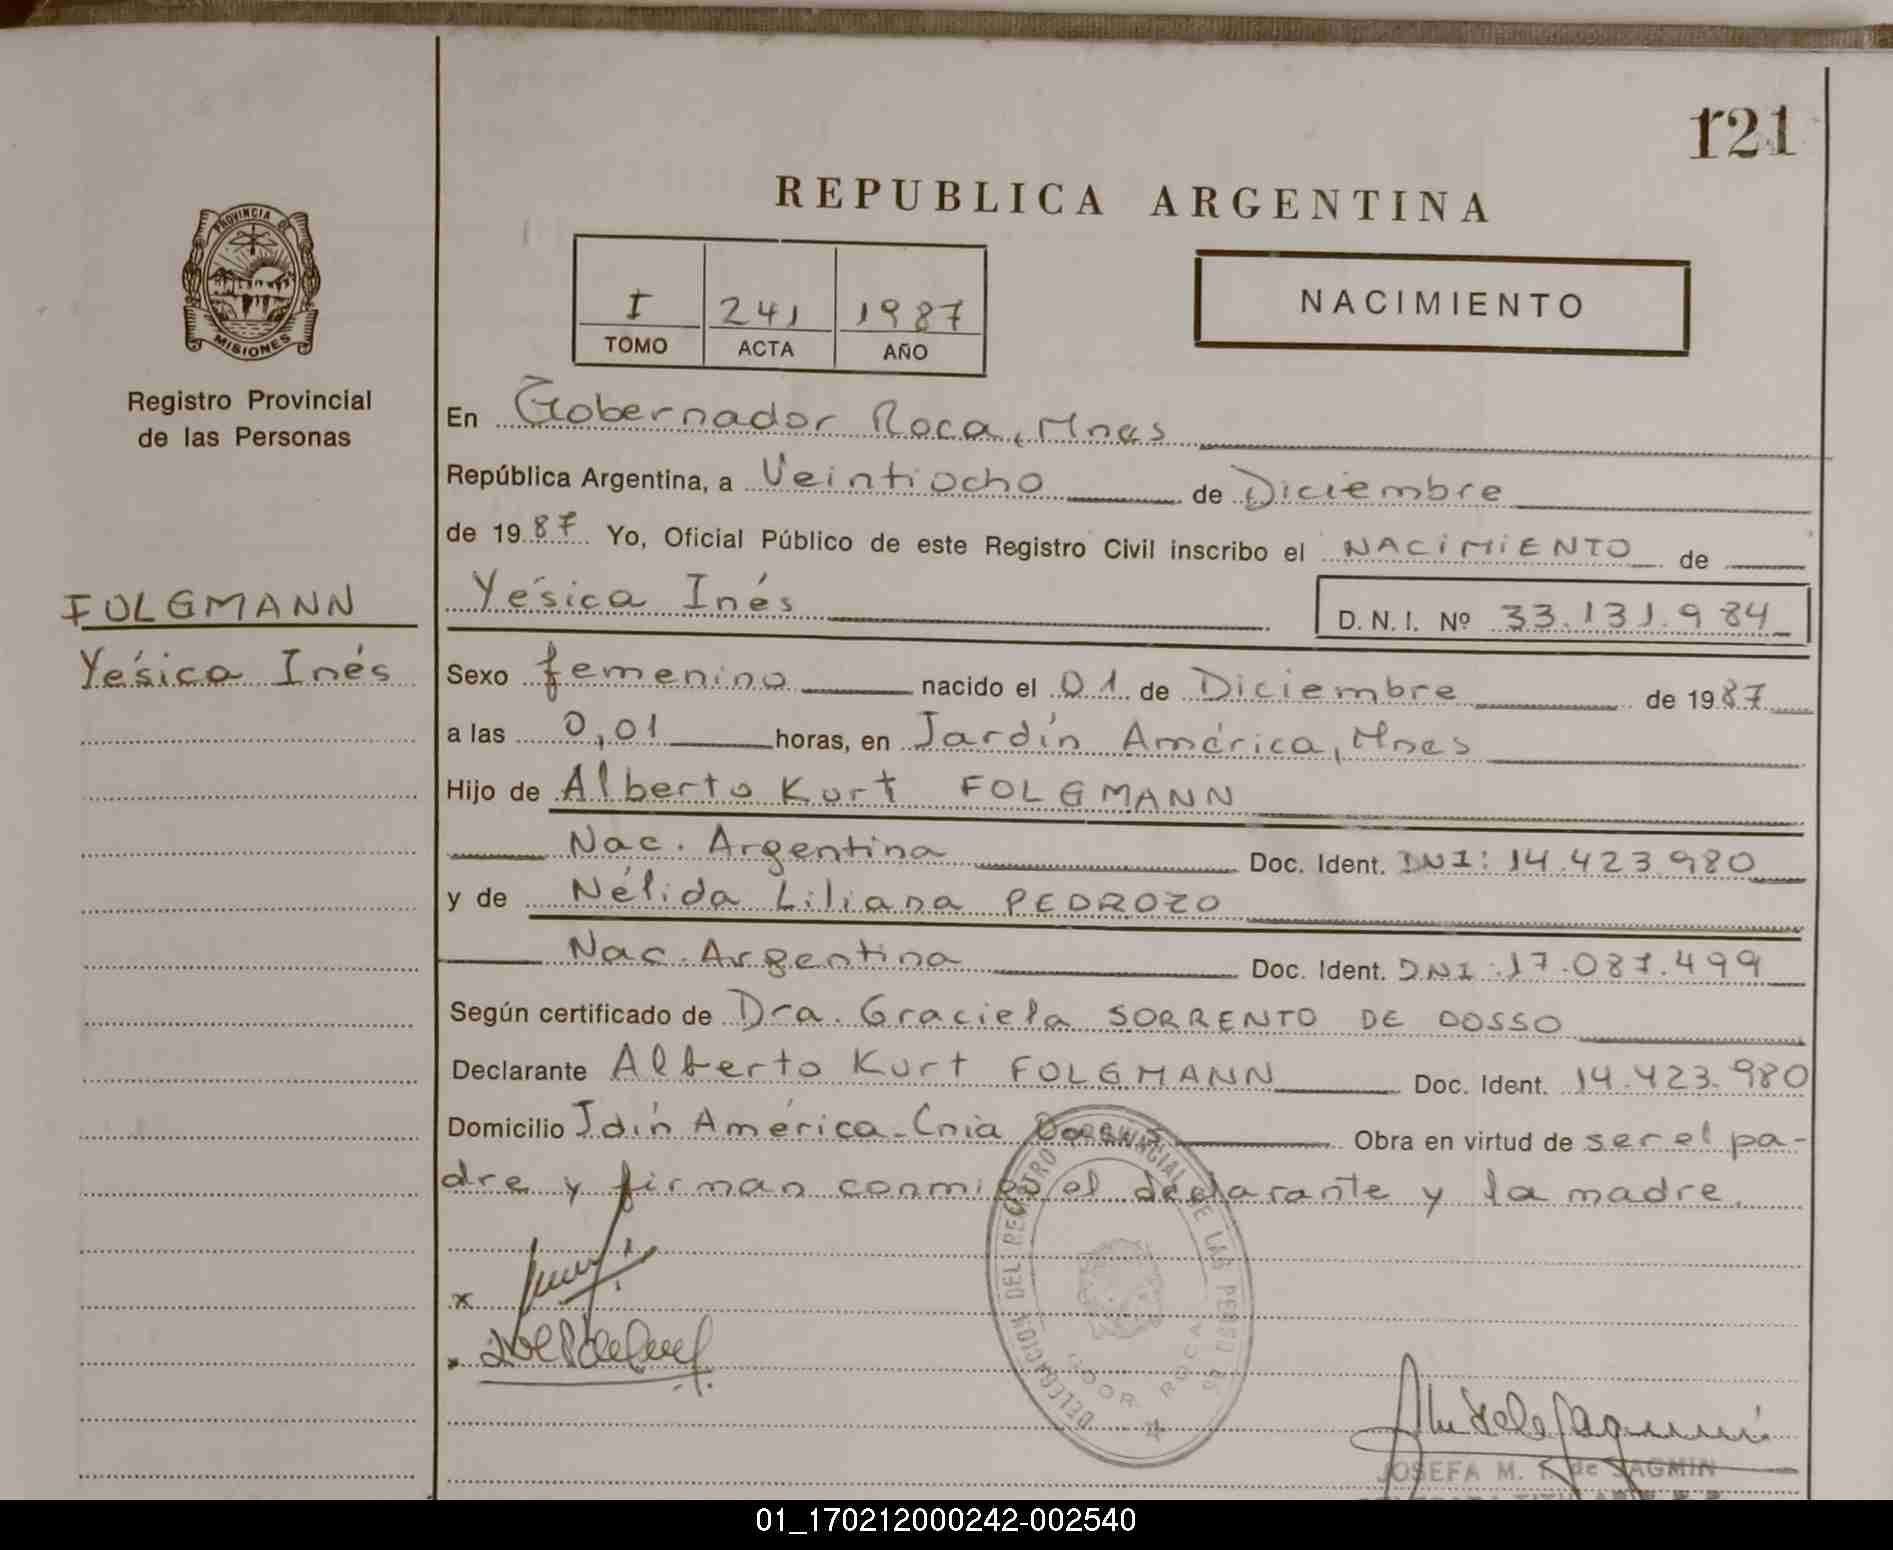 121
REPUBLICA ARGENTINA
PROVINCIA DE
MISIONES
Registro Provincial
de las Personas
I 241 1987
TOMO ACTA AÑO
NACIMIENTO
En Gobernador Roca, Mnes
República Argentina, a Veintiocho de Diciembre
de 1987 Yo, Oficial Público de este Registro Civil inscribo el NACIMIENTO de
FOLGMANN
Yésica Inés
Yésica Inés D.N.I. Nº 33.131.984
Sexo femenino nacido el 01 de Diciembre de 1987
a las 0,01 horas, en Jardín América, Mnes
Hijo de Alberto Kurt FOLGMANN
Nac. Argentina Doc. Ident. DNI: 14.423.980
y de Nélida Liliana PEDROZO
Nac. Argentina Doc. Ident. DNI: 17.087.499
Según certificado de Dra. Graciela SORRENTO DE DOSSO
Declarante Alberto Kurt FOLGMANN Doc. Ident. 14.423.980
Domicilio Jdín América-Cnia Obra en virtud de ser el pa-
dre y firman conmigo el declarante y la madre.
x
x
DELEGACION DEL REGISTRO PROVINCIAL DE LAS PERSONAS
GDOR ROCA
JOSEFA M. F. de SAGMIN
01_170212000242-002540